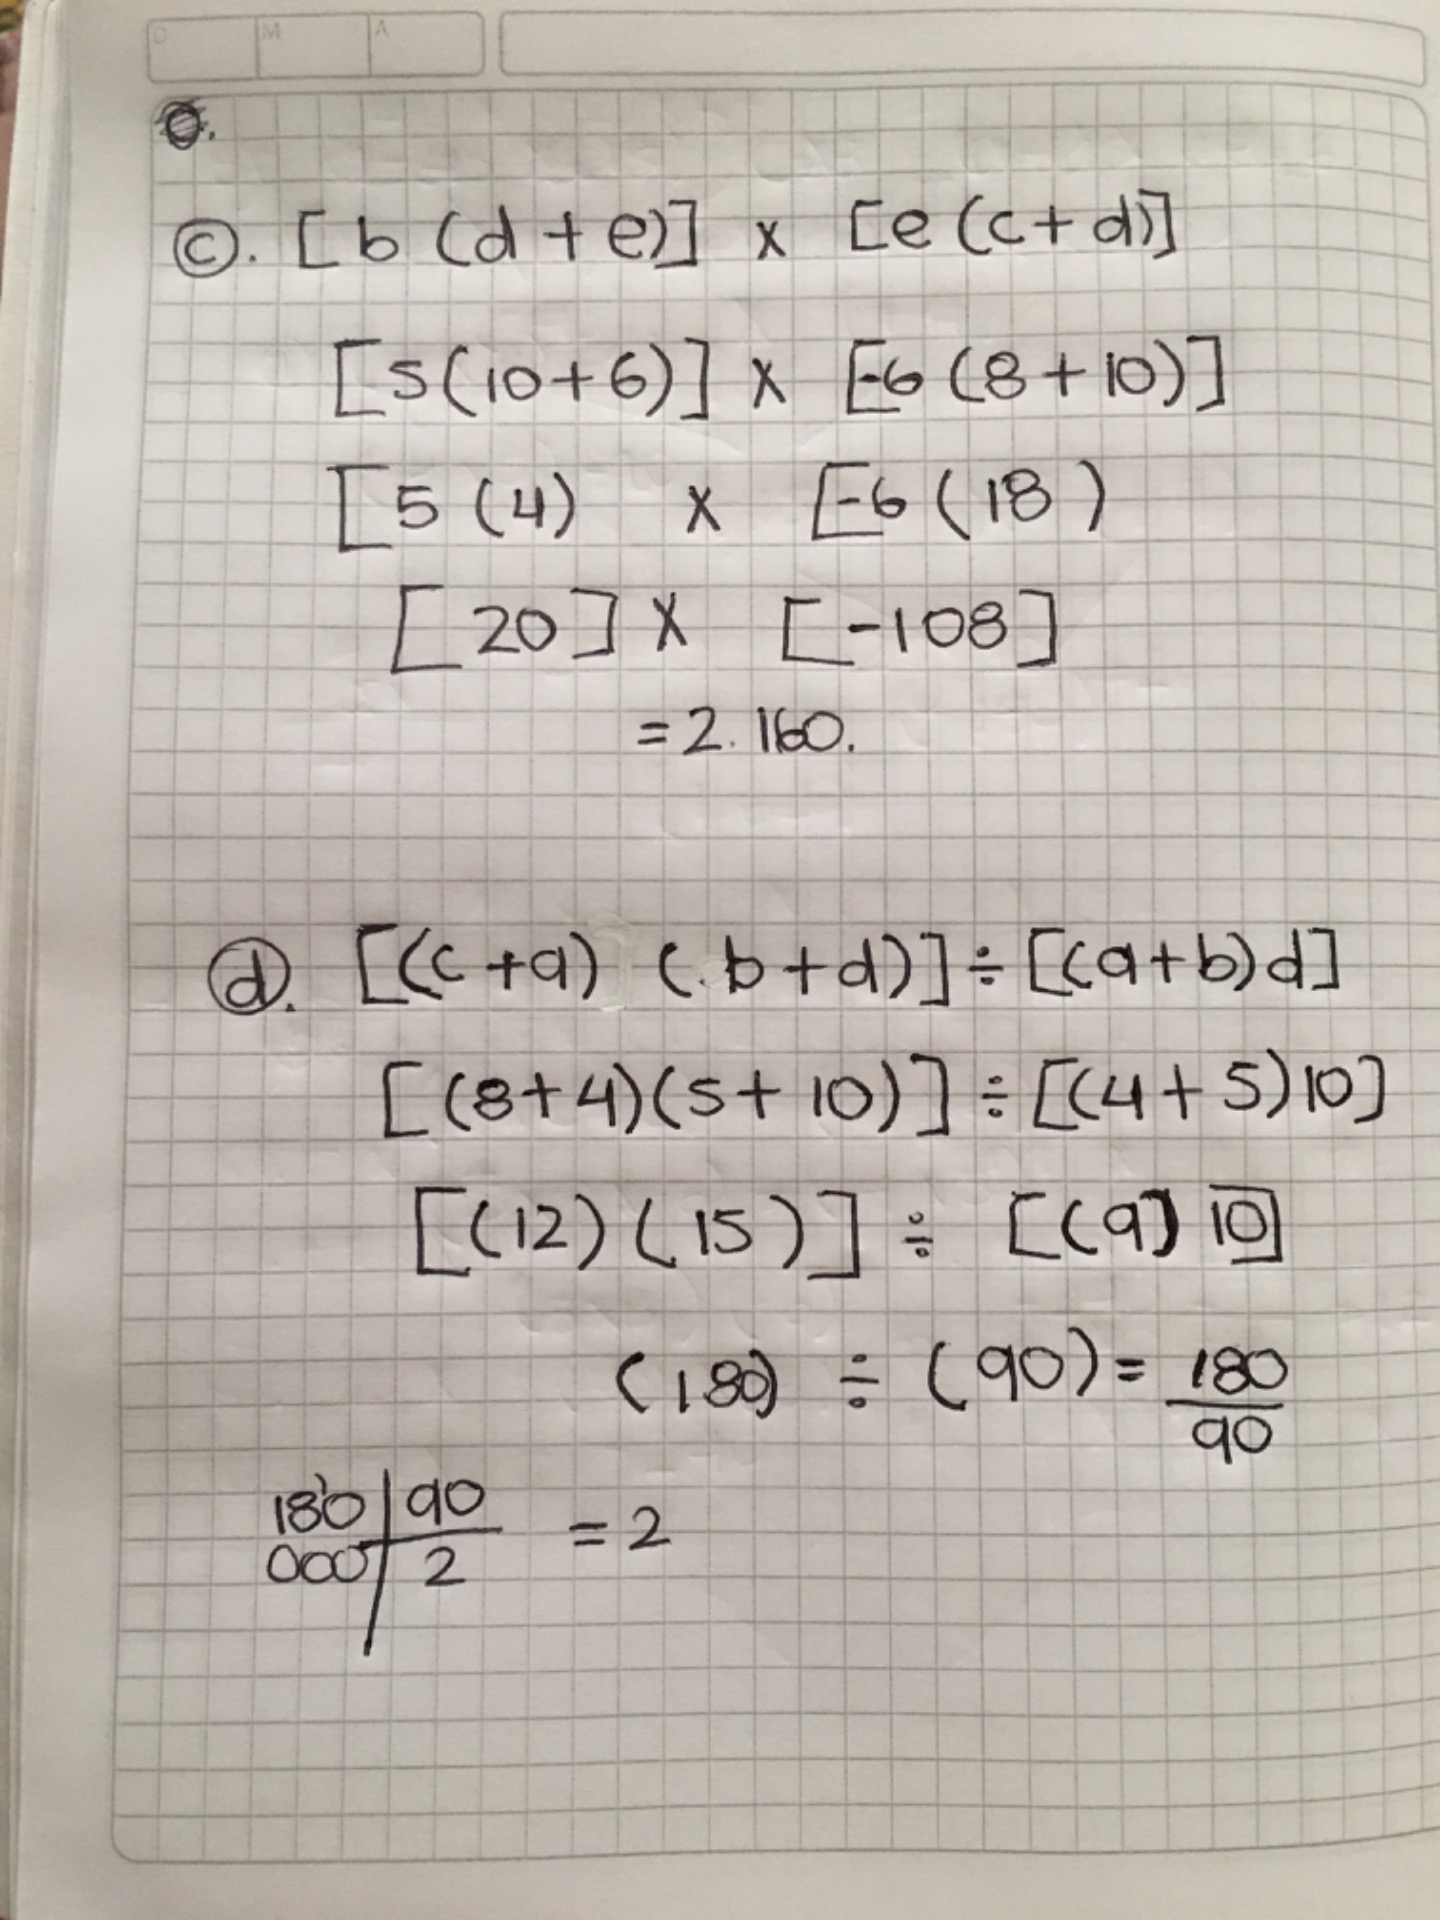 D M A
c. [b (d + e)] x [e (c + d)]
[5(10+6)] x [-6 (8+10)]
[5 (4) x [-6 (18)
[20] x [-108]
=2.160.
d. [(c +a) (.b+d)]÷[(a+b)d]
[(8+4)(5+10)]÷[(4+5)10]
[(12)(15)] ÷ [(9) 10]
(180) ÷ (90) = 180
90
180 90 = 2
000 2